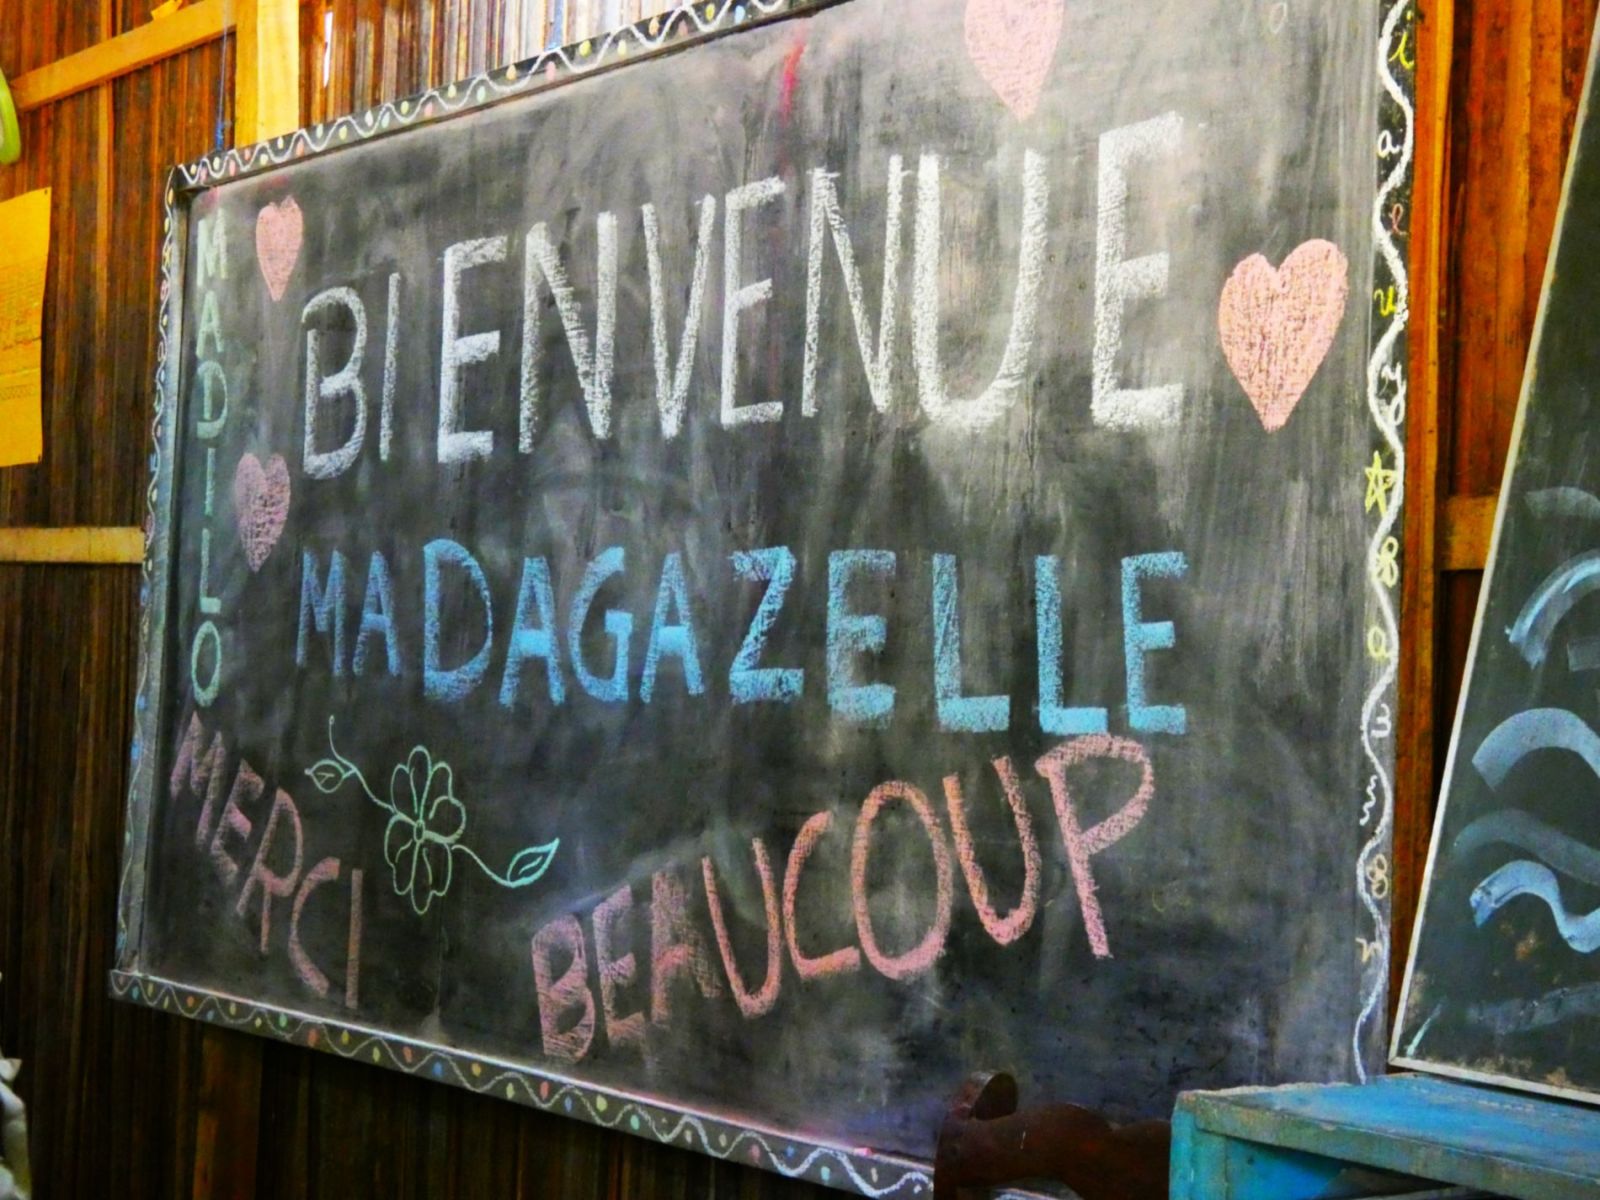 MADILO
BIENVENUE
MADAGAZELLE
MERCI
BEAUCOUP